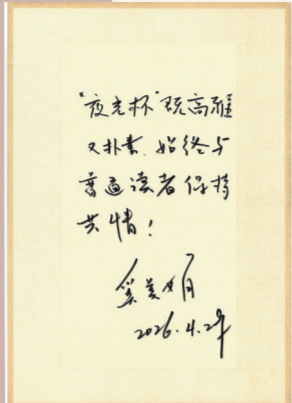 “夜光杯”既高雅
又朴素，始终与
普通读者保持
共情！
奚美娟
2026.4.29